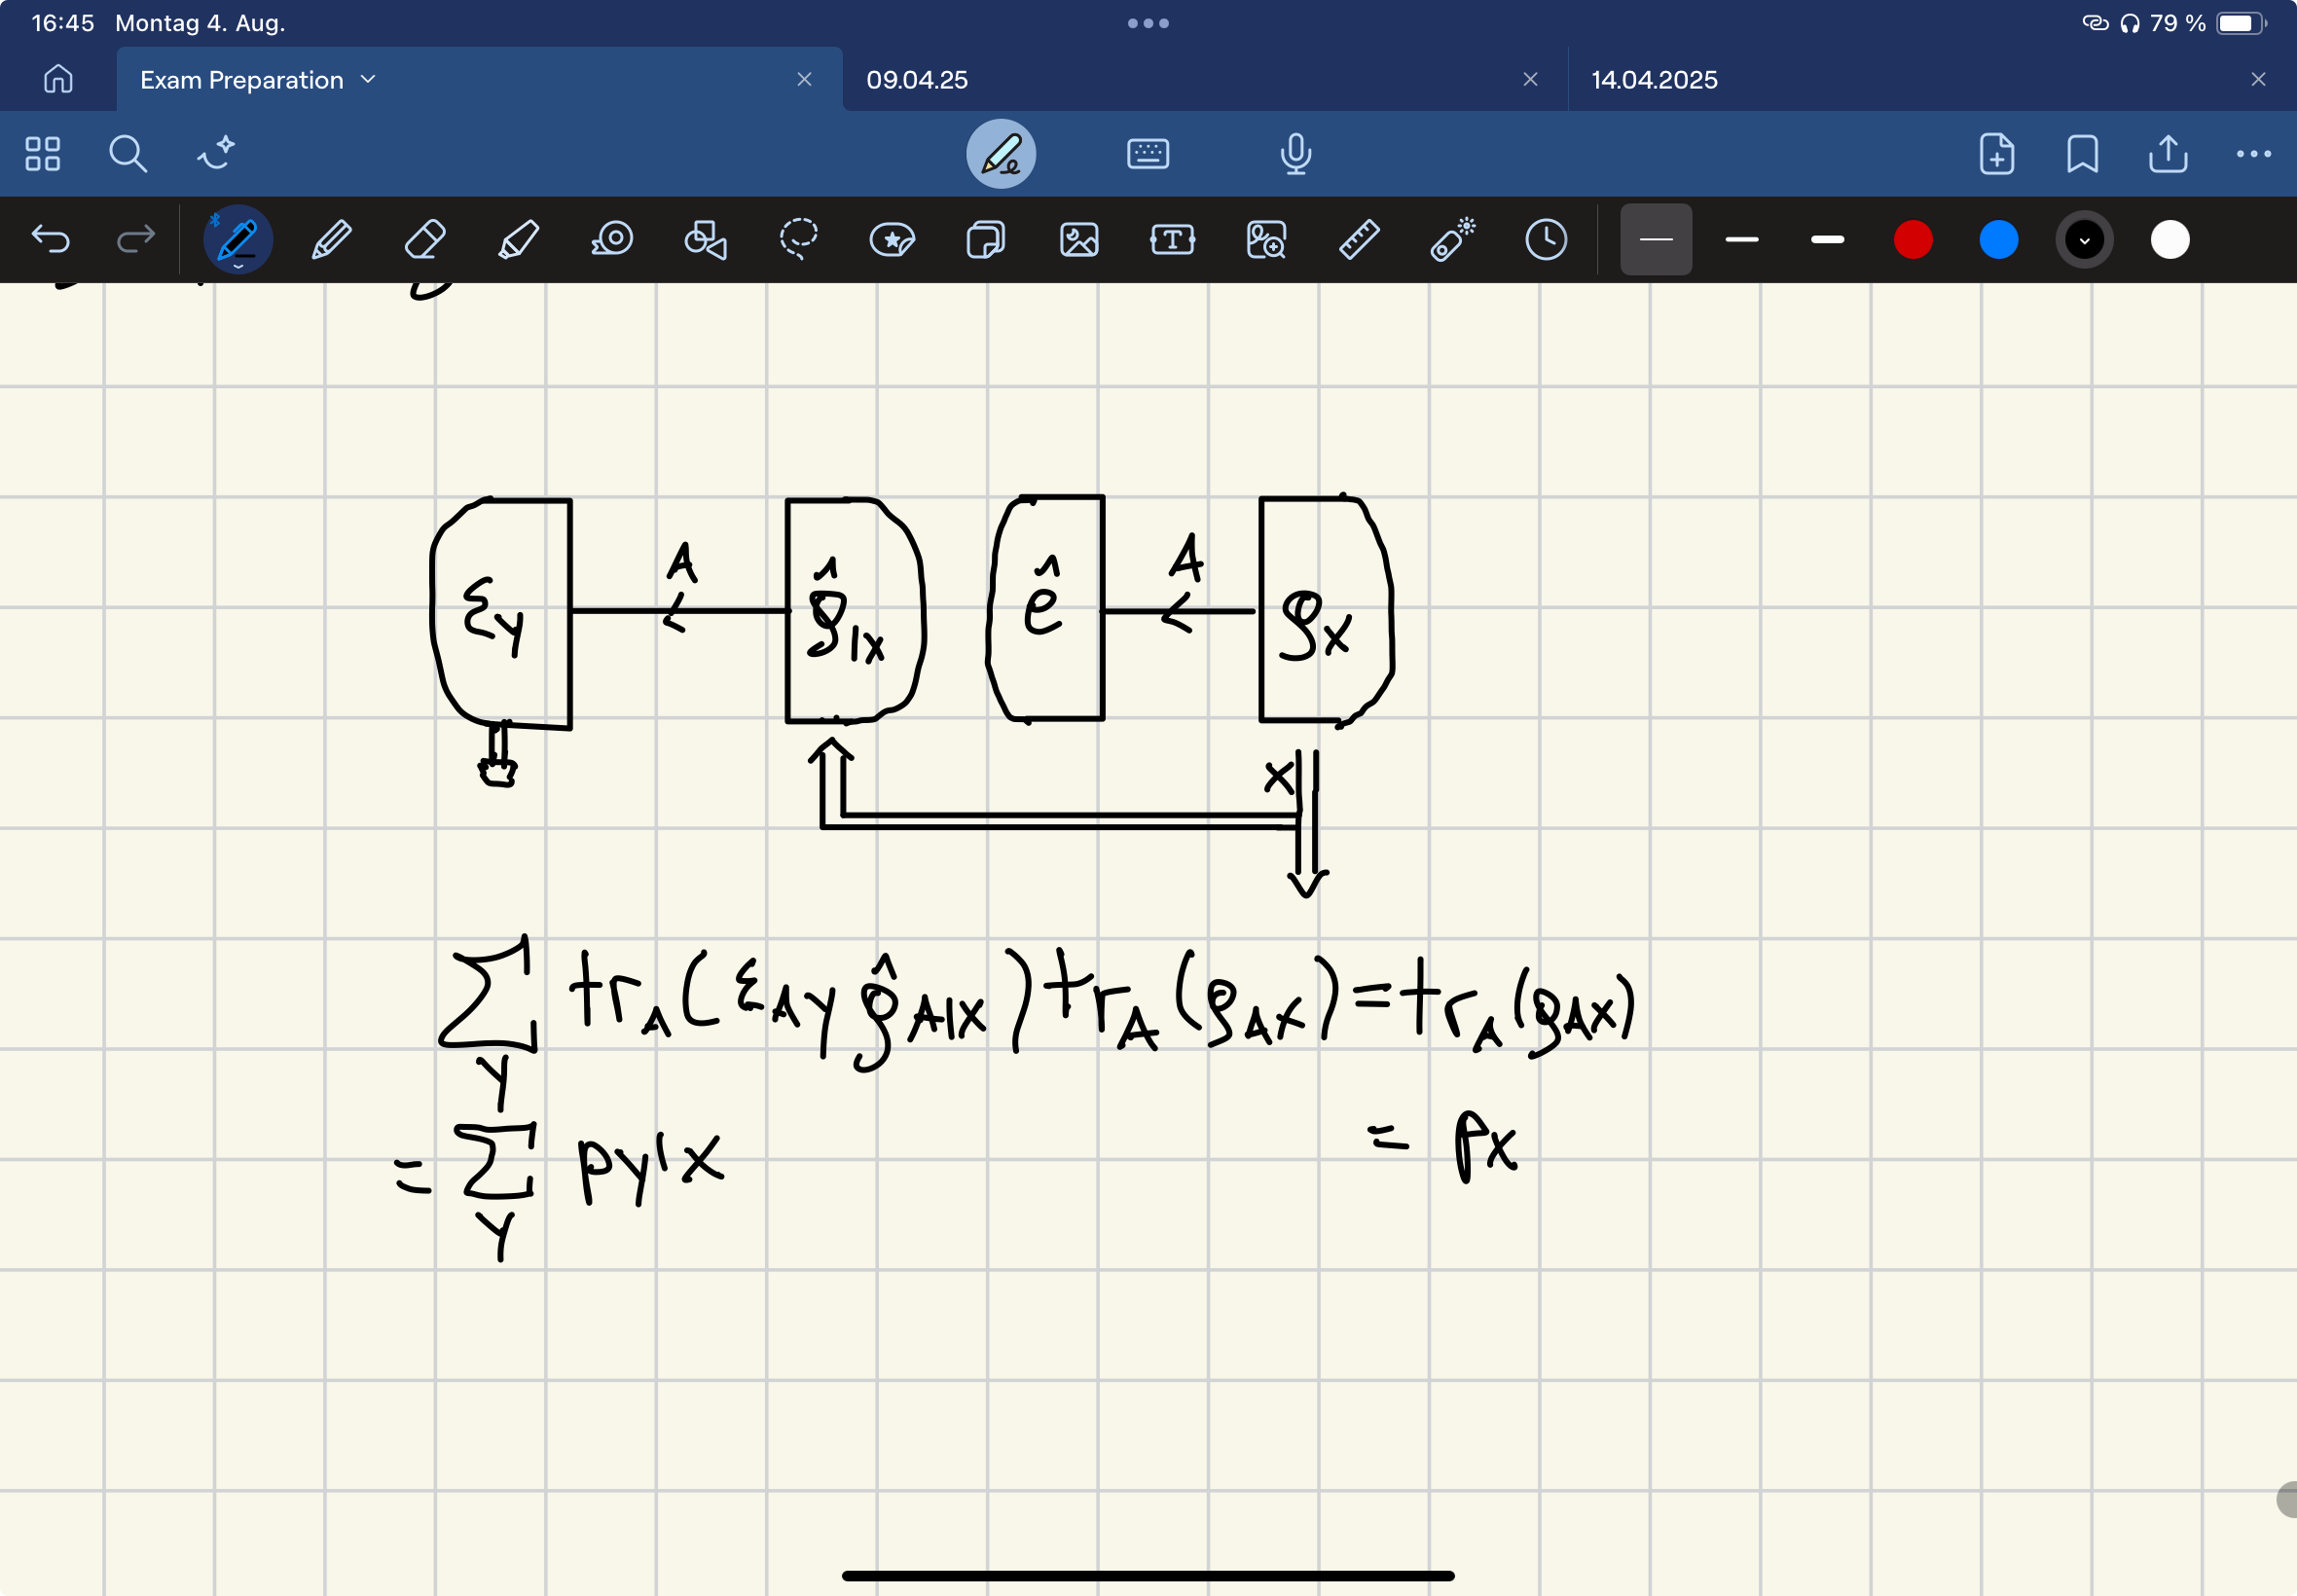 16:45 Montag 4. Aug. 79 %
Exam Preparation 09.04.25 14.04.2025
A A
ξ_y ρ̂_|x ê ρ_x
x
∑_y tr_A(ξ_Ay ρ̂_A|x) tr_A(ρ_Ax) = tr_A(ρ_Ax)
= ∑_y p y|x = p x